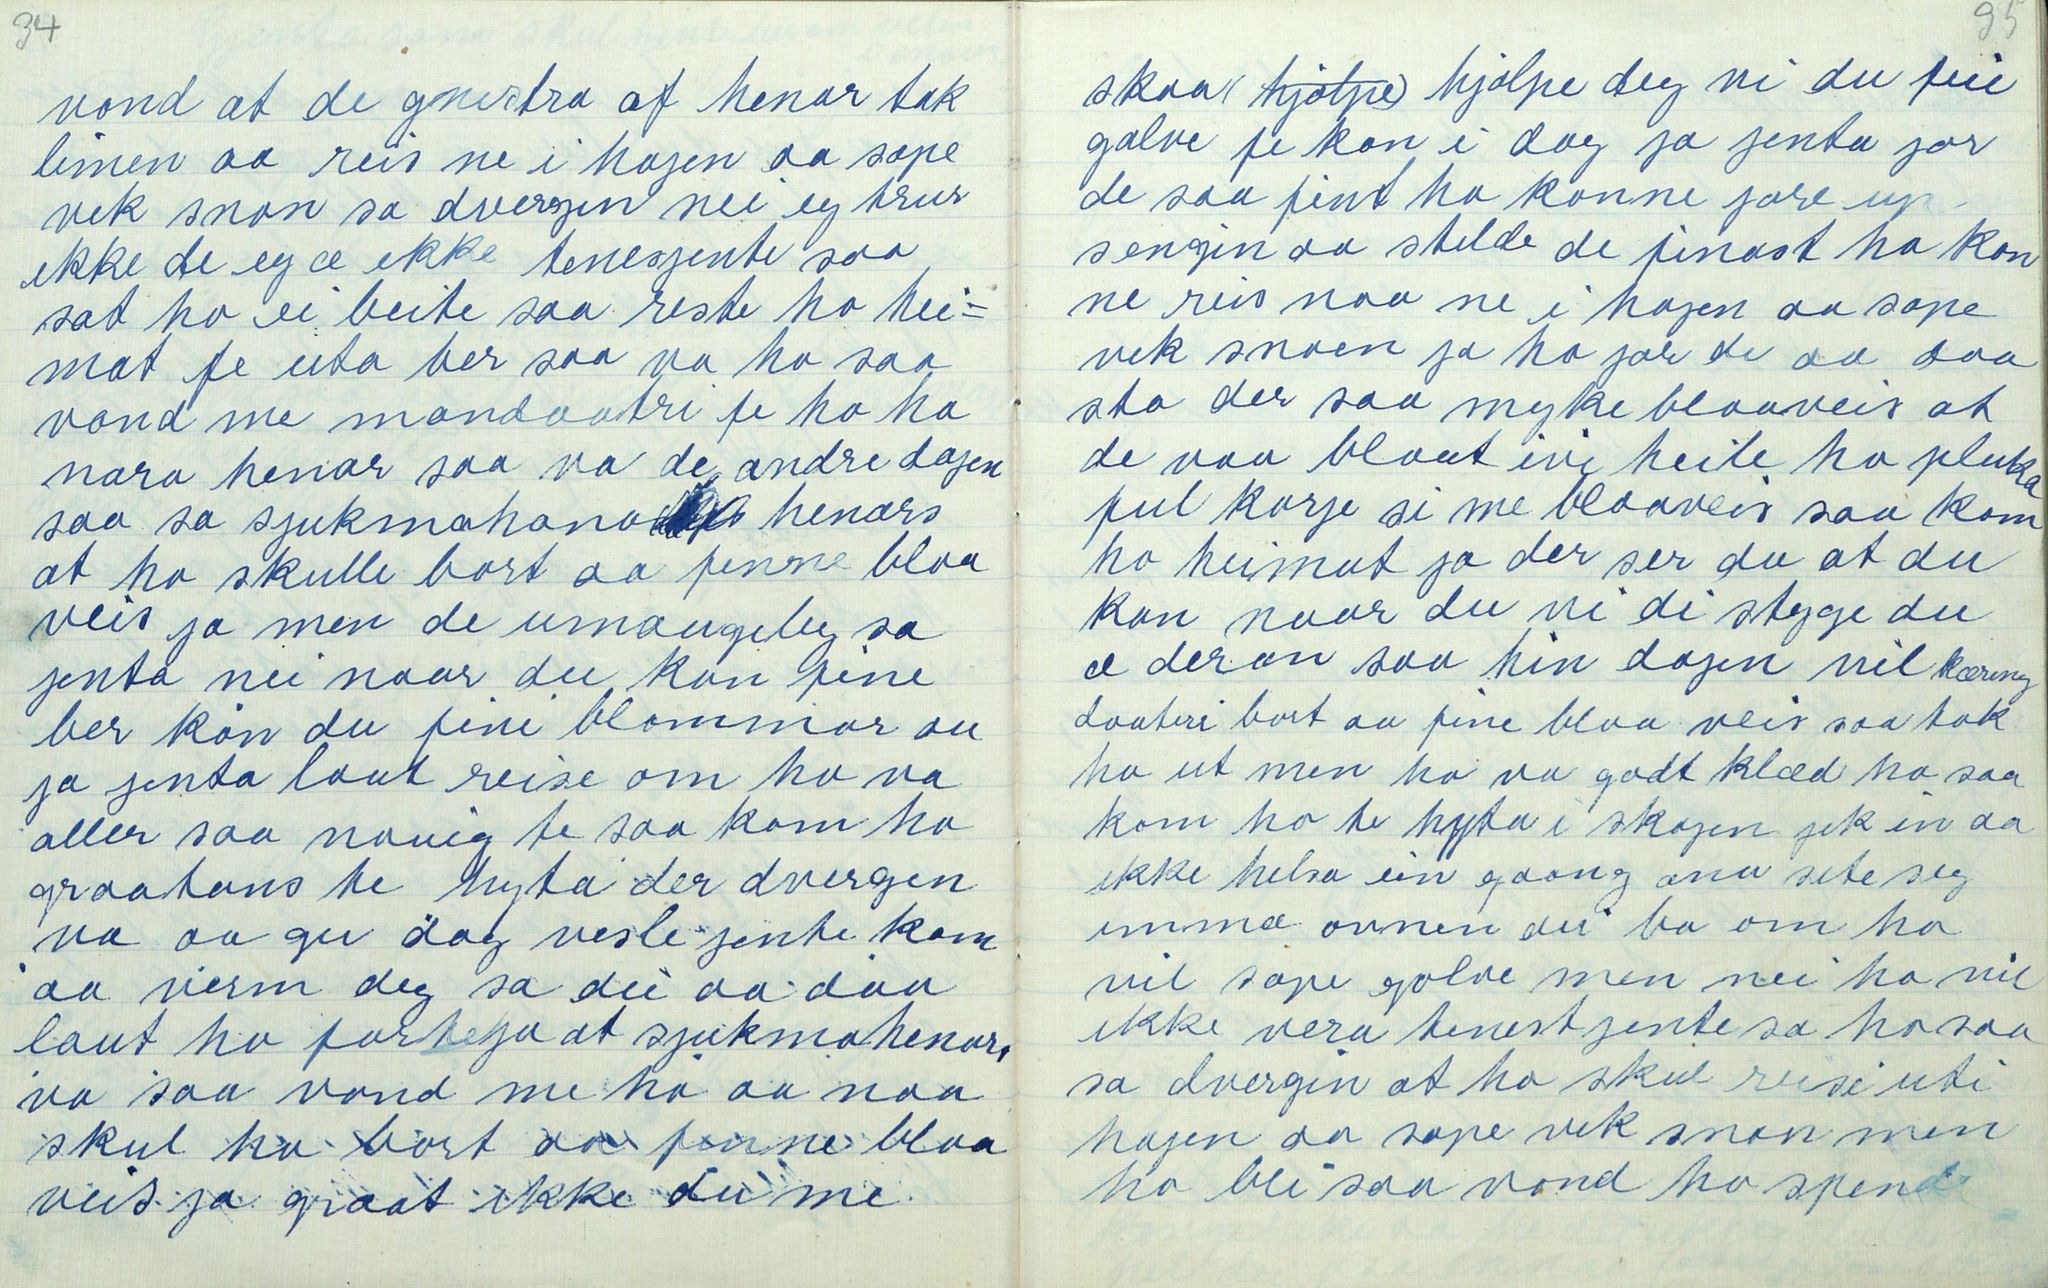 34
vond at de gneistra af henar tak
limen aa reis ne i hagen aa sope
vek snøn sa dvergen nei eg trur
ikke de eg æ ikke tenesjente saa
sat ho ei beite saa reste ho hei=
mat fe uta ber saa va ho saa
vond me mandaatri fe ho ha
nara henar saa va de andre dagen
saa sa sjukmahana henars
at ho skulle bort aa finne blaa
veis ja men de umaugeleg sa
jenta nei naar du kan fine
ber kan du fini blommar au
ja jenta laut reise om ho va
aller saa nauig te saa kom ho
graatans te hyta der dvergen
va aa gu dag vesle jente kom
aa verm deg sa dei aa daa
laut ho fortelja at sjukmahenars
va saa vond me ho aa naa
skul ho bort aa finne blaa
veis ja graat ikke du me
35
skaa (hjølpe) hjølpe deg vi du feie
golve fe kan i dag ja jenta jor
de saa fint ho konne jore up
sengin aa stelde de finast ho kon
ne reis naa ne i hagen aa sope
vek snøen ja ho jor de aa daa
sto der saa myke blaaveis at
de vaa blaat ivi heile ho pluka
ful korje si me blaaveis saa kom
ho heimat ja der ser du at du
kan naar du vi di stygge du
æ deran saa hin dagen vil kæring
daateri bort aa fine blaa veis saa tok
ho ut men ho va godt klæd ho saa
kom ho te hyta i skogen jek in aa
ikke helsa ein gaang ana sete seg
imma ovnen dei ba om ho
vil sope golve men nei ho vil
ikke vera tenestjente sa ho saa
sa dvergin at ho skul reise uti
hagen aa sope vek snøn men
ho blei saa vond ho spende